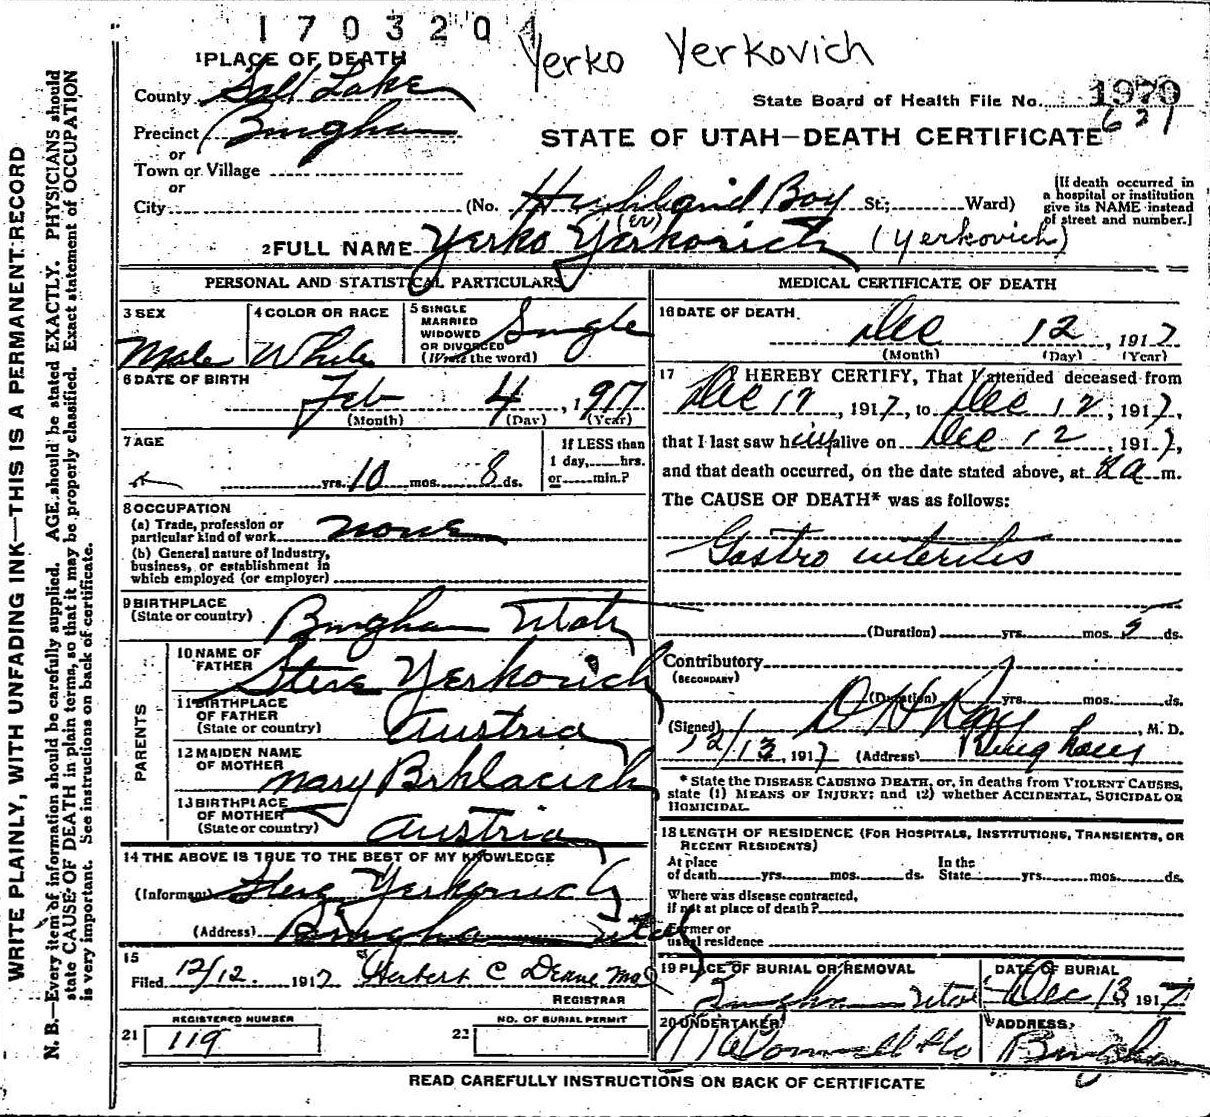 1703204
Yerko Yerkovich
1 PLACE OF DEATH
County Salt Lake
State Board of Health File No. 1970
621
Precinct Bingham
STATE OF UTAH—DEATH CERTIFICATE
or
Town or Village
or
City (No. Highland Boy St.; Ward)
[If death occurred in
a hospital or institution
give its NAME instead
of street and number.]
2 FULL NAME Yerko Yerkovich (Yerkovich)
PERSONAL AND STATISTICAL PARTICULARS
3 SEX
Male
4 COLOR OR RACE
White
5 SINGLE
MARRIED
WIDOWED
OR DIVORCED
(Write the word)
Single
6 DATE OF BIRTH
Feb 4, 1917
(Month) (Day) (Year)
7 AGE
If LESS than
1 day, hrs.
or min.?
yrs. 10 mos. 8 ds.
8 OCCUPATION
(a) Trade, profession or
particular kind of work none
(b) General nature of Industry,
business, or establishment in
which employed (or employer)
9 BIRTHPLACE
(State or country) Bingham Utah
PARENTS
10 NAME OF
FATHER Steve Yerkovich
11 BIRTHPLACE
OF FATHER
(State or country) Austria
12 MAIDEN NAME
OF MOTHER Mary
13 BIRTHPLACE
OF MOTHER
(State or country) Austria
14 THE ABOVE IS TRUE TO THE BEST OF MY KNOWLEDGE
(Informant) Steve Yerkovich
(Address) Bingham Utah
15
Filed 12/12. 1917 Herbert C
REGISTRAR
REGISTERED NUMBER
21 119
NO. OF BURIAL PERMIT
22
MEDICAL CERTIFICATE OF DEATH
16 DATE OF DEATH
Dec 12, 1917
(Month) (Day) (Year)
17 I HEREBY CERTIFY, That I attended deceased from
Dec 12, 1917, to Dec 12, 1917,
that I last saw him alive on Dec 12, 1917,
and that death occurred, on the date stated above, at m.
The CAUSE OF DEATH* was as follows:
Gastro interitis
(Duration) yrs. mos. 5 ds.
Contributory
(SECONDARY)
(Duration) yrs. mos. ds.
(Signed) D H Ray, M. D.
12/13, 1917 (Address) Bingham
* State the DISEASE CAUSING DEATH, or, in deaths from VIOLENT CAUSES,
state (1) MEANS OF INJURY; and (2) whether ACCIDENTAL, SUICIDAL OR
HOMICIDAL.
18 LENGTH OF RESIDENCE (FOR HOSPITALS, INSTITUTIONS, TRANSIENTS, OR
RECENT RESIDENTS)
At place In the
of death yrs. mos. ds. State yrs. mos. ds.
Where was disease contracted,
if not at place of death?
Former or
usual residence
19 PLACE OF BURIAL OR REMOVAL
Bingham Utah
DATE OF BURIAL
Dec 13 1917
20 UNDERTAKER
ADDRESS
Bingham
READ CAREFULLY INSTRUCTIONS ON BACK OF CERTIFICATE
WRITE PLAINLY, WITH UNFADING INK—THIS IS A PERMANENT RECORD
N. B.—Every item of information should be carefully supplied. AGE should be stated EXACTLY. PHYSICIANS should
state CAUSE OF DEATH in plain terms, so that it may be properly classified. Exact statement of OCCUPATION
is very important. See instructions on back of certificate.